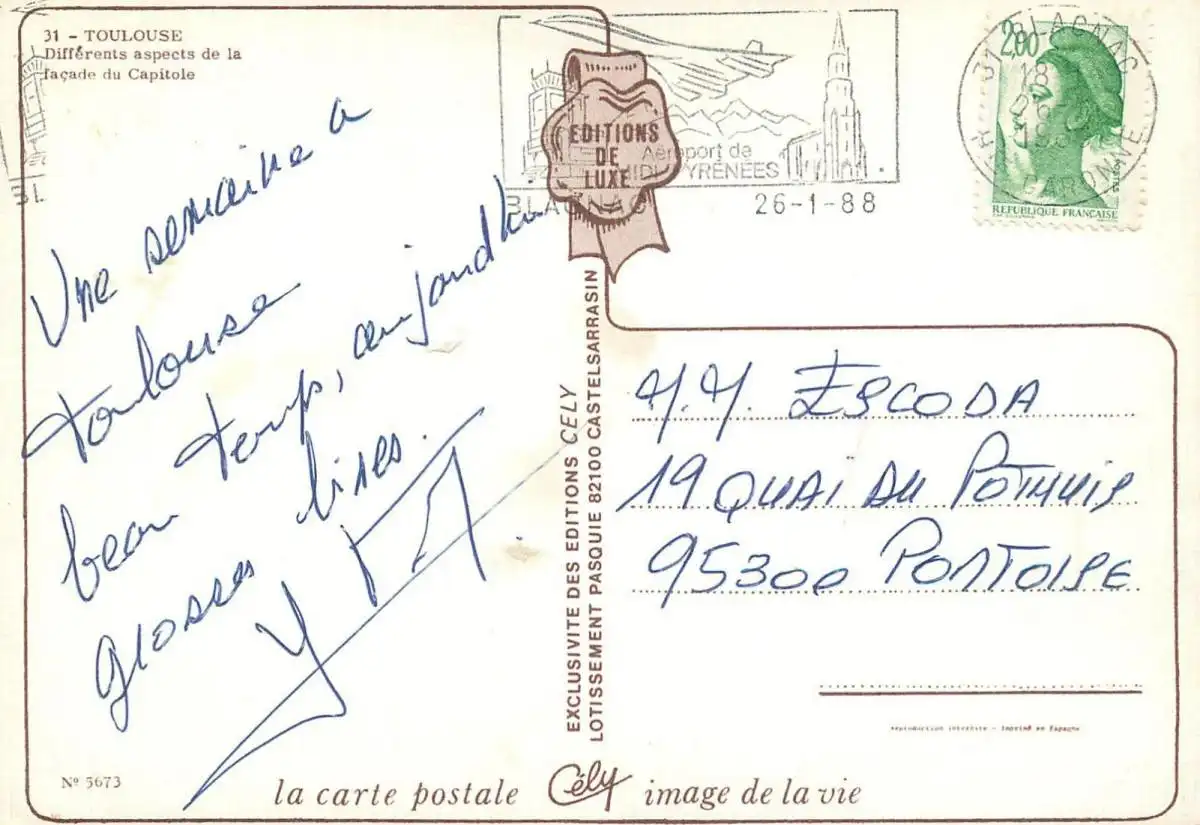 31 - TOULOUSE
Différents aspects de la
façade du Capitole
Une semaine a
toulouse
beau temps, aujourdhui
grosses bises.
EDITIONS
DE
LUXE
Aéroport de
MIDI-PYRÉNÉES
BLAGNAC 26-1-88
2,00
31 BLAGNAC
18 H
26
1988
GARONNE
POSTES
REPUBLIQUE FRANÇAISE
EXCLUSIVITE DES EDITIONS CELY
LOTISSEMENT PASQUIE 82100 CASTELSARRASIN
M.M. ESCODA
19 QUAI DU POTHUIS
95300 PONTOISE
reproduction interdite - Imprimé en Espagne
Nº 5673
la carte postale Cély image de la vie